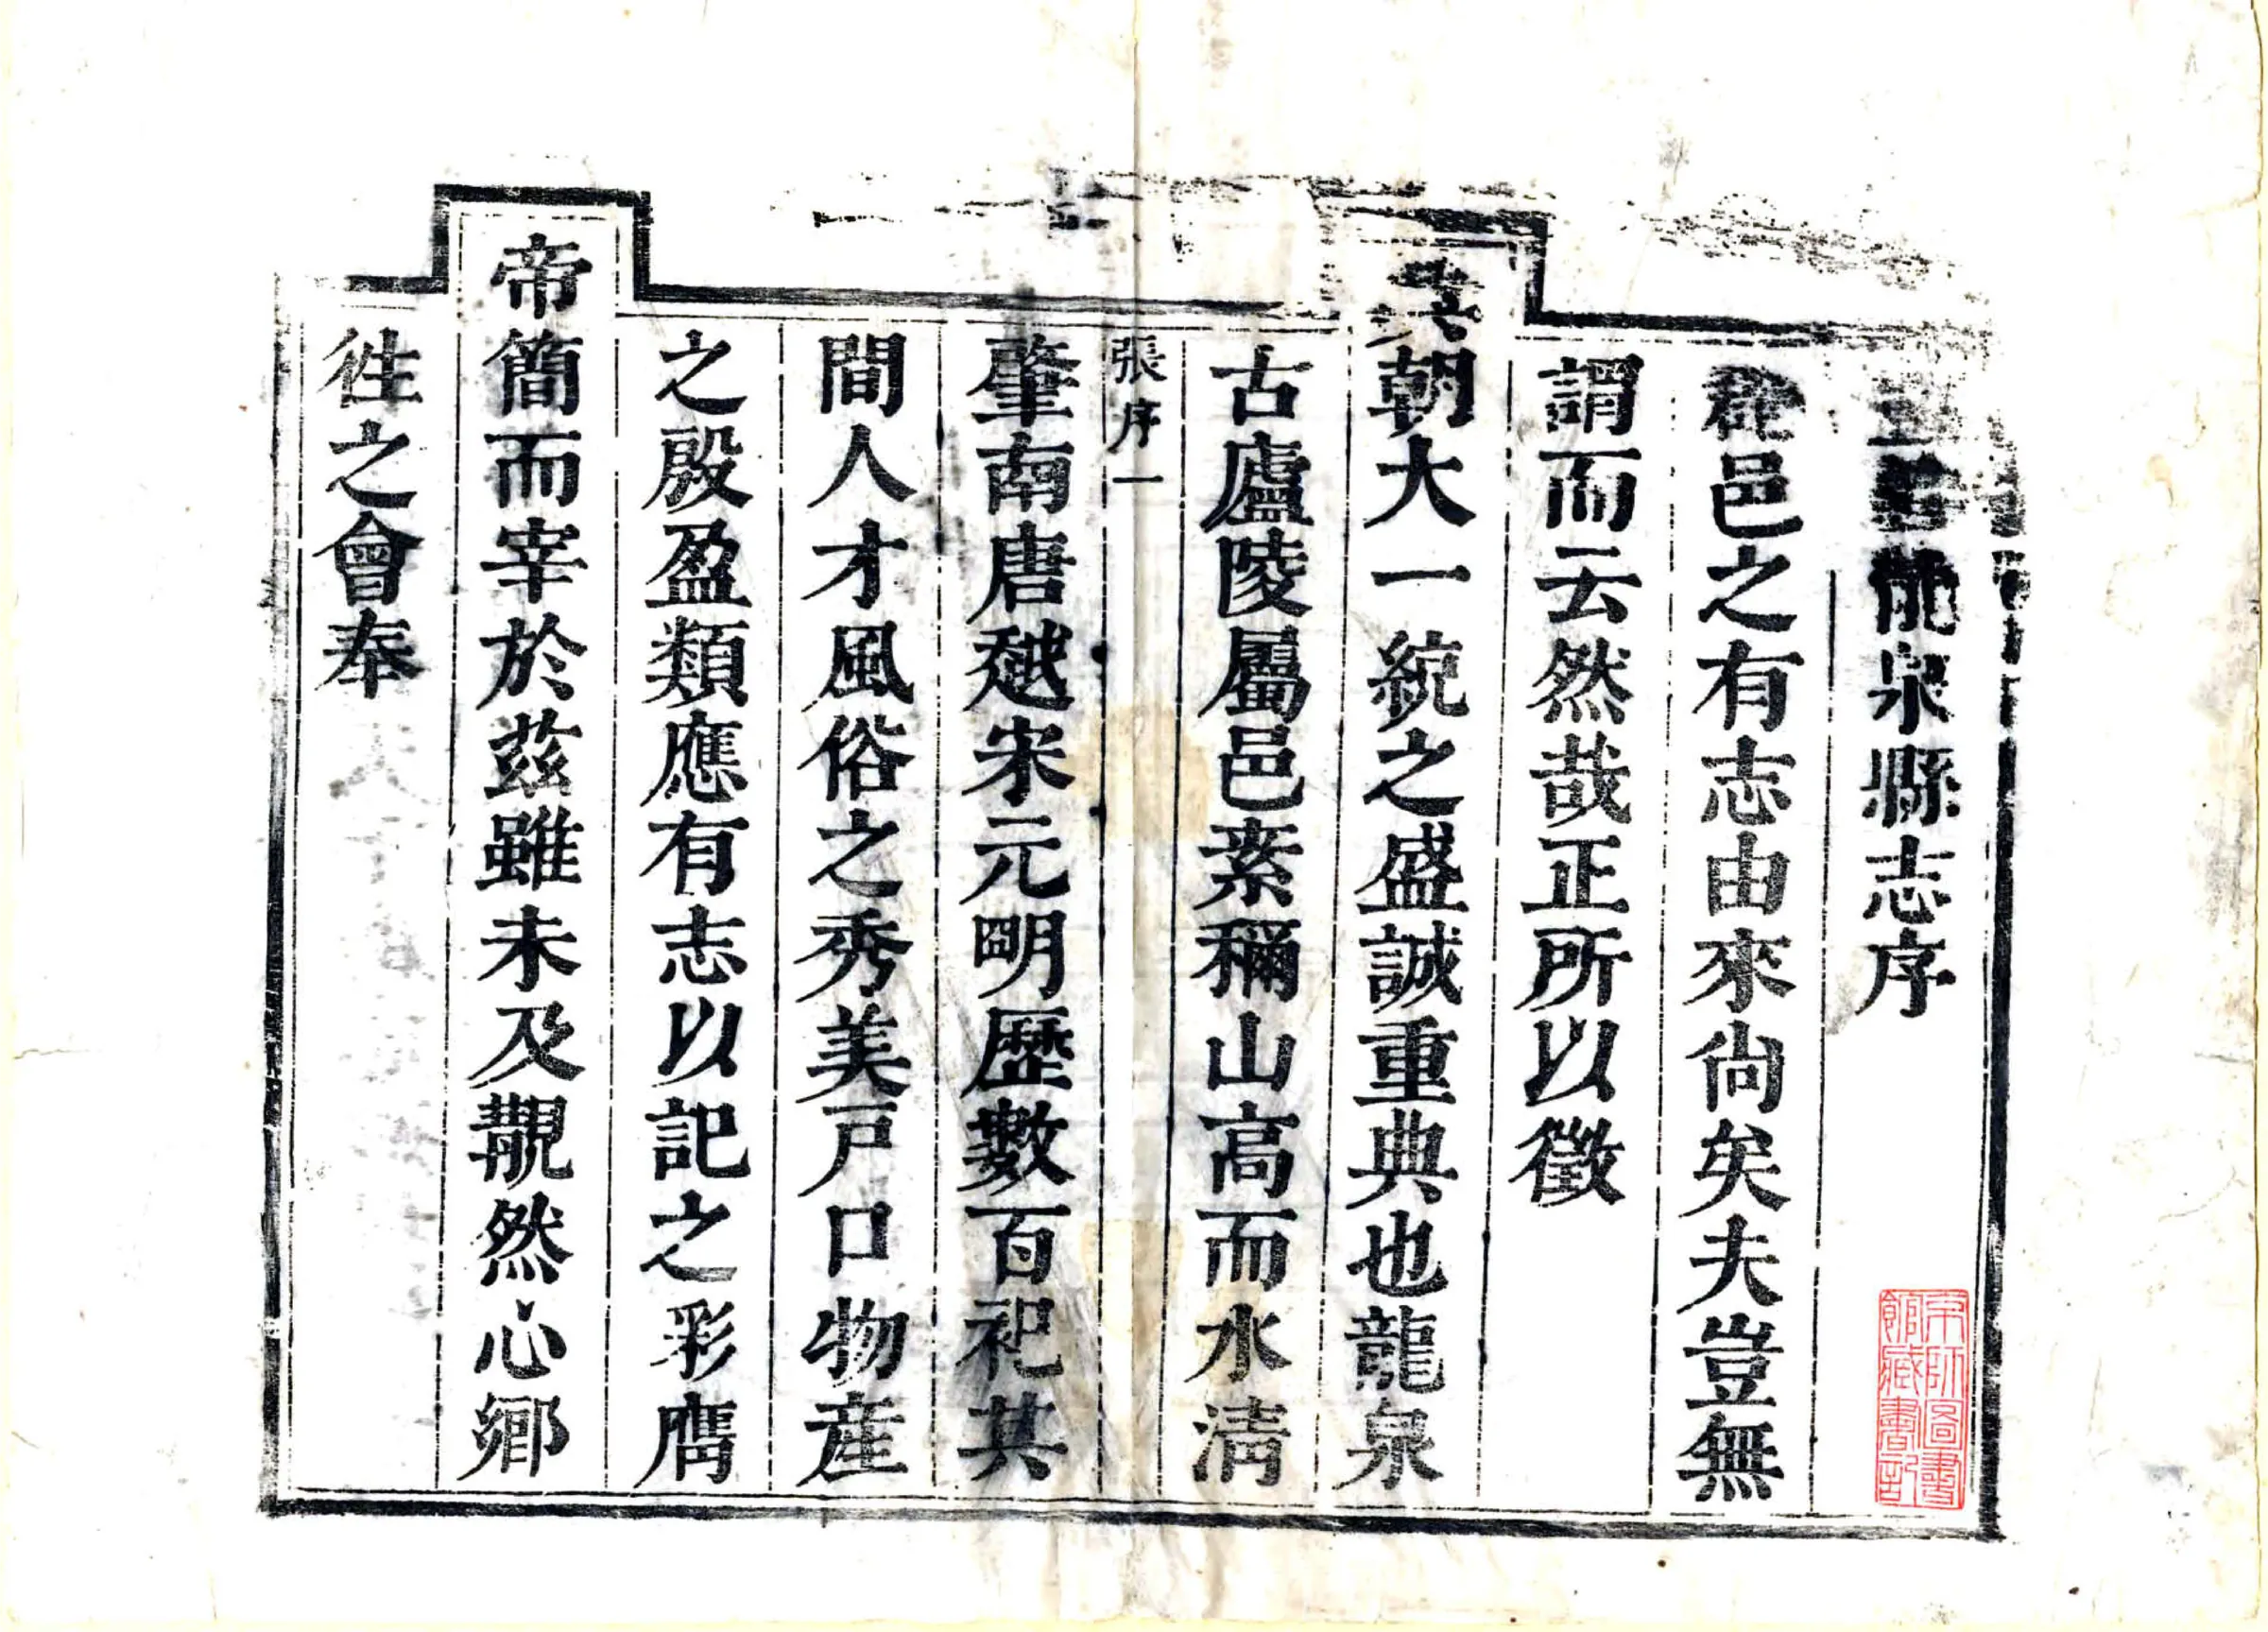 龍泉縣志序
郡邑之有志由來尙矣夫豈無
謂而云然哉正所以徵
朝大一統之盛誠重典也龍泉
古廬陵屬邑素稱山高而水清
張序一
肇南唐越宋元明歷數百祀其
間人才風俗之秀美戸口物產
之殷盈類應有志以記之彩膺
帝簡而宰於茲雖未及覯然心鄉
徃之會奉
京師圖書
館藏書記